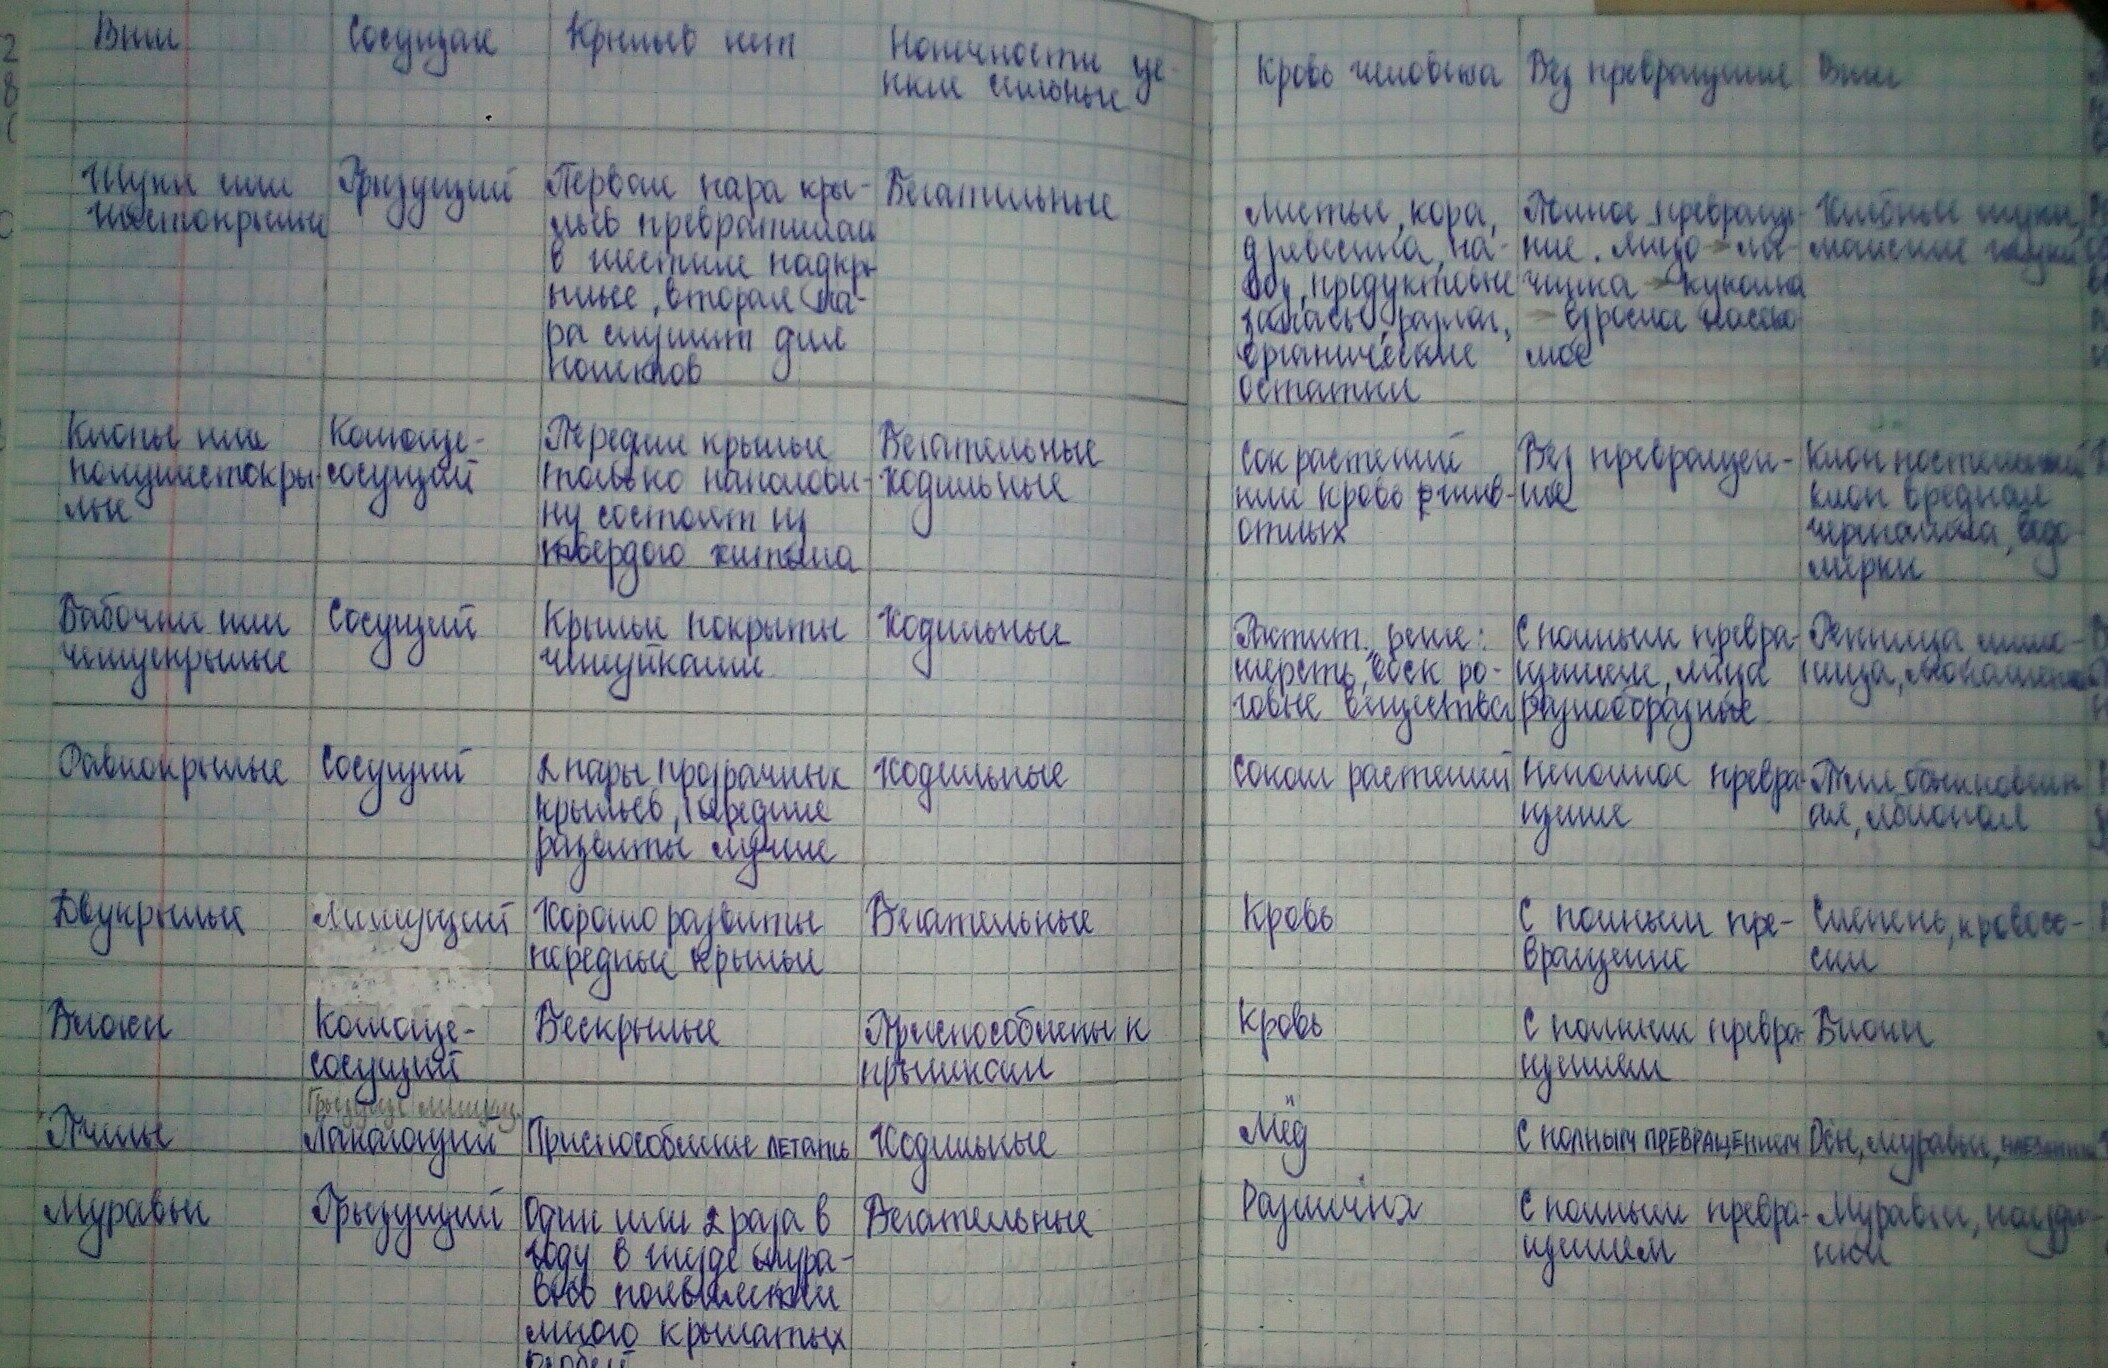 Вши
Сосущая
Крыльев нет
Конечности це-
пкие сильные
Кровь человека
Без превращение
Вши
Жуки или
жесткокрылые
Грызущий
Первая пара кры-
льев превратилась
в жесткие надкры
лье, вторая па-
ра служит для
полетов
Бегательные
Листья, кора,
древесина, на-
воз, продуктовые
запасы разлог,
органические
остатки
Полное превраще-
ние. яйцо → ли-
чинка → куколка
→ взрослое насеко
мое
Хлебные жуки,
майские жуки
Клопы или
полужесткокры-
лые
Колюще-
сосущий
Передние крылья
только наполови-
ну состоят из
твердого хитина
Бегательные
ходильные
Сок растений
или кровь жив-
отных
Без превращен-
ие
Клоп постельный
клоп вредная
черепашка, водо-
мерки
Бабочки или
чешуекрылые
Сосущий
Крылья покрыты
чешуйками
Ходильные
Растит. реже:
шерсть, воск ро-
говые вещества
С полным превра-
щением, яйца
разнообразные
Репница лимо-
ница, Монашенка
Равнокрылые
Сосущий
2 пары прозрачных
крыльев, передние
развиты лучше
Ходильные
Соком растений
Неполное превра-
щение
Тли обыкновенн
ая,
Двукрылые
Лижущий
Хорошо развиты
передные крылья
Бегательные
Кровь
С полным пре-
вращение
Слепень, кровосо-
ски
Блохи
Колюще-
сосущий
Бескрылые
Приспособлены к
прыжкам
Кровь
С полным превра-
щением
Блохи
Пчелы
Грызуще лижущ.
Лакающий
Приспособление летать
Ходильные
Мёд
С полным превращением
Осы, муравьи, наездники
Муравьи
Грызущий
Один или 2 раза в
году в гнезде мура-
вьев появляются
много крылатых
особей
Бегательные
Различная
С полным превра-
щением
Муравьи, наезд-
ники